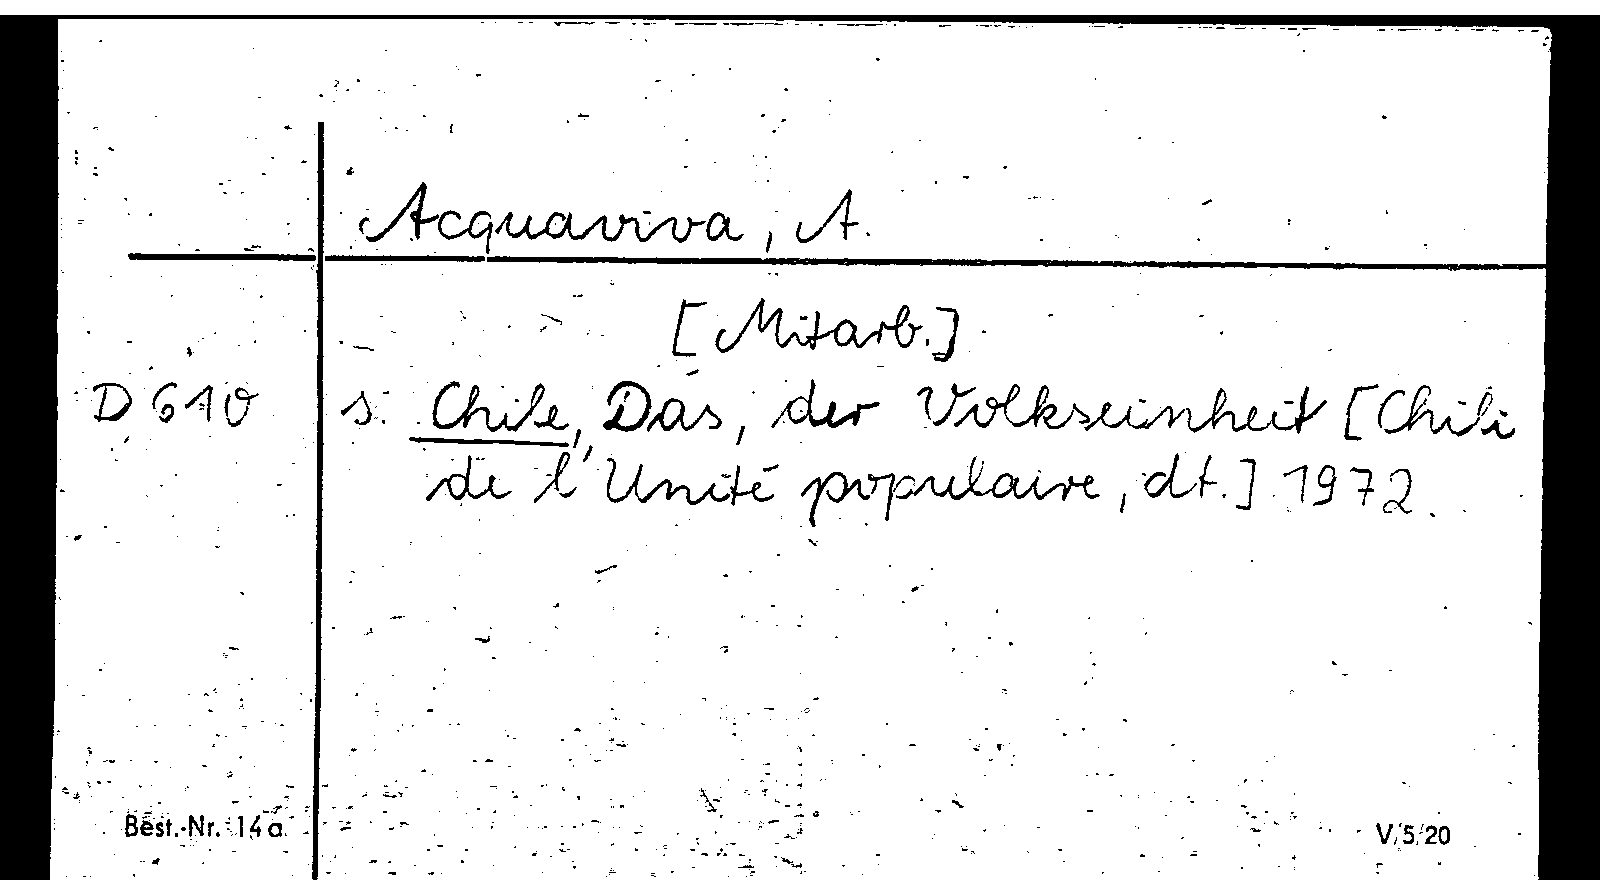 Acquaviva, A.
[Mitarb.]
D 610 s. Chile, Das, der Volkseinheit [Chili
de l'Unité populaire, dt.] 1972.
Best.-Nr. 14a V/5/20